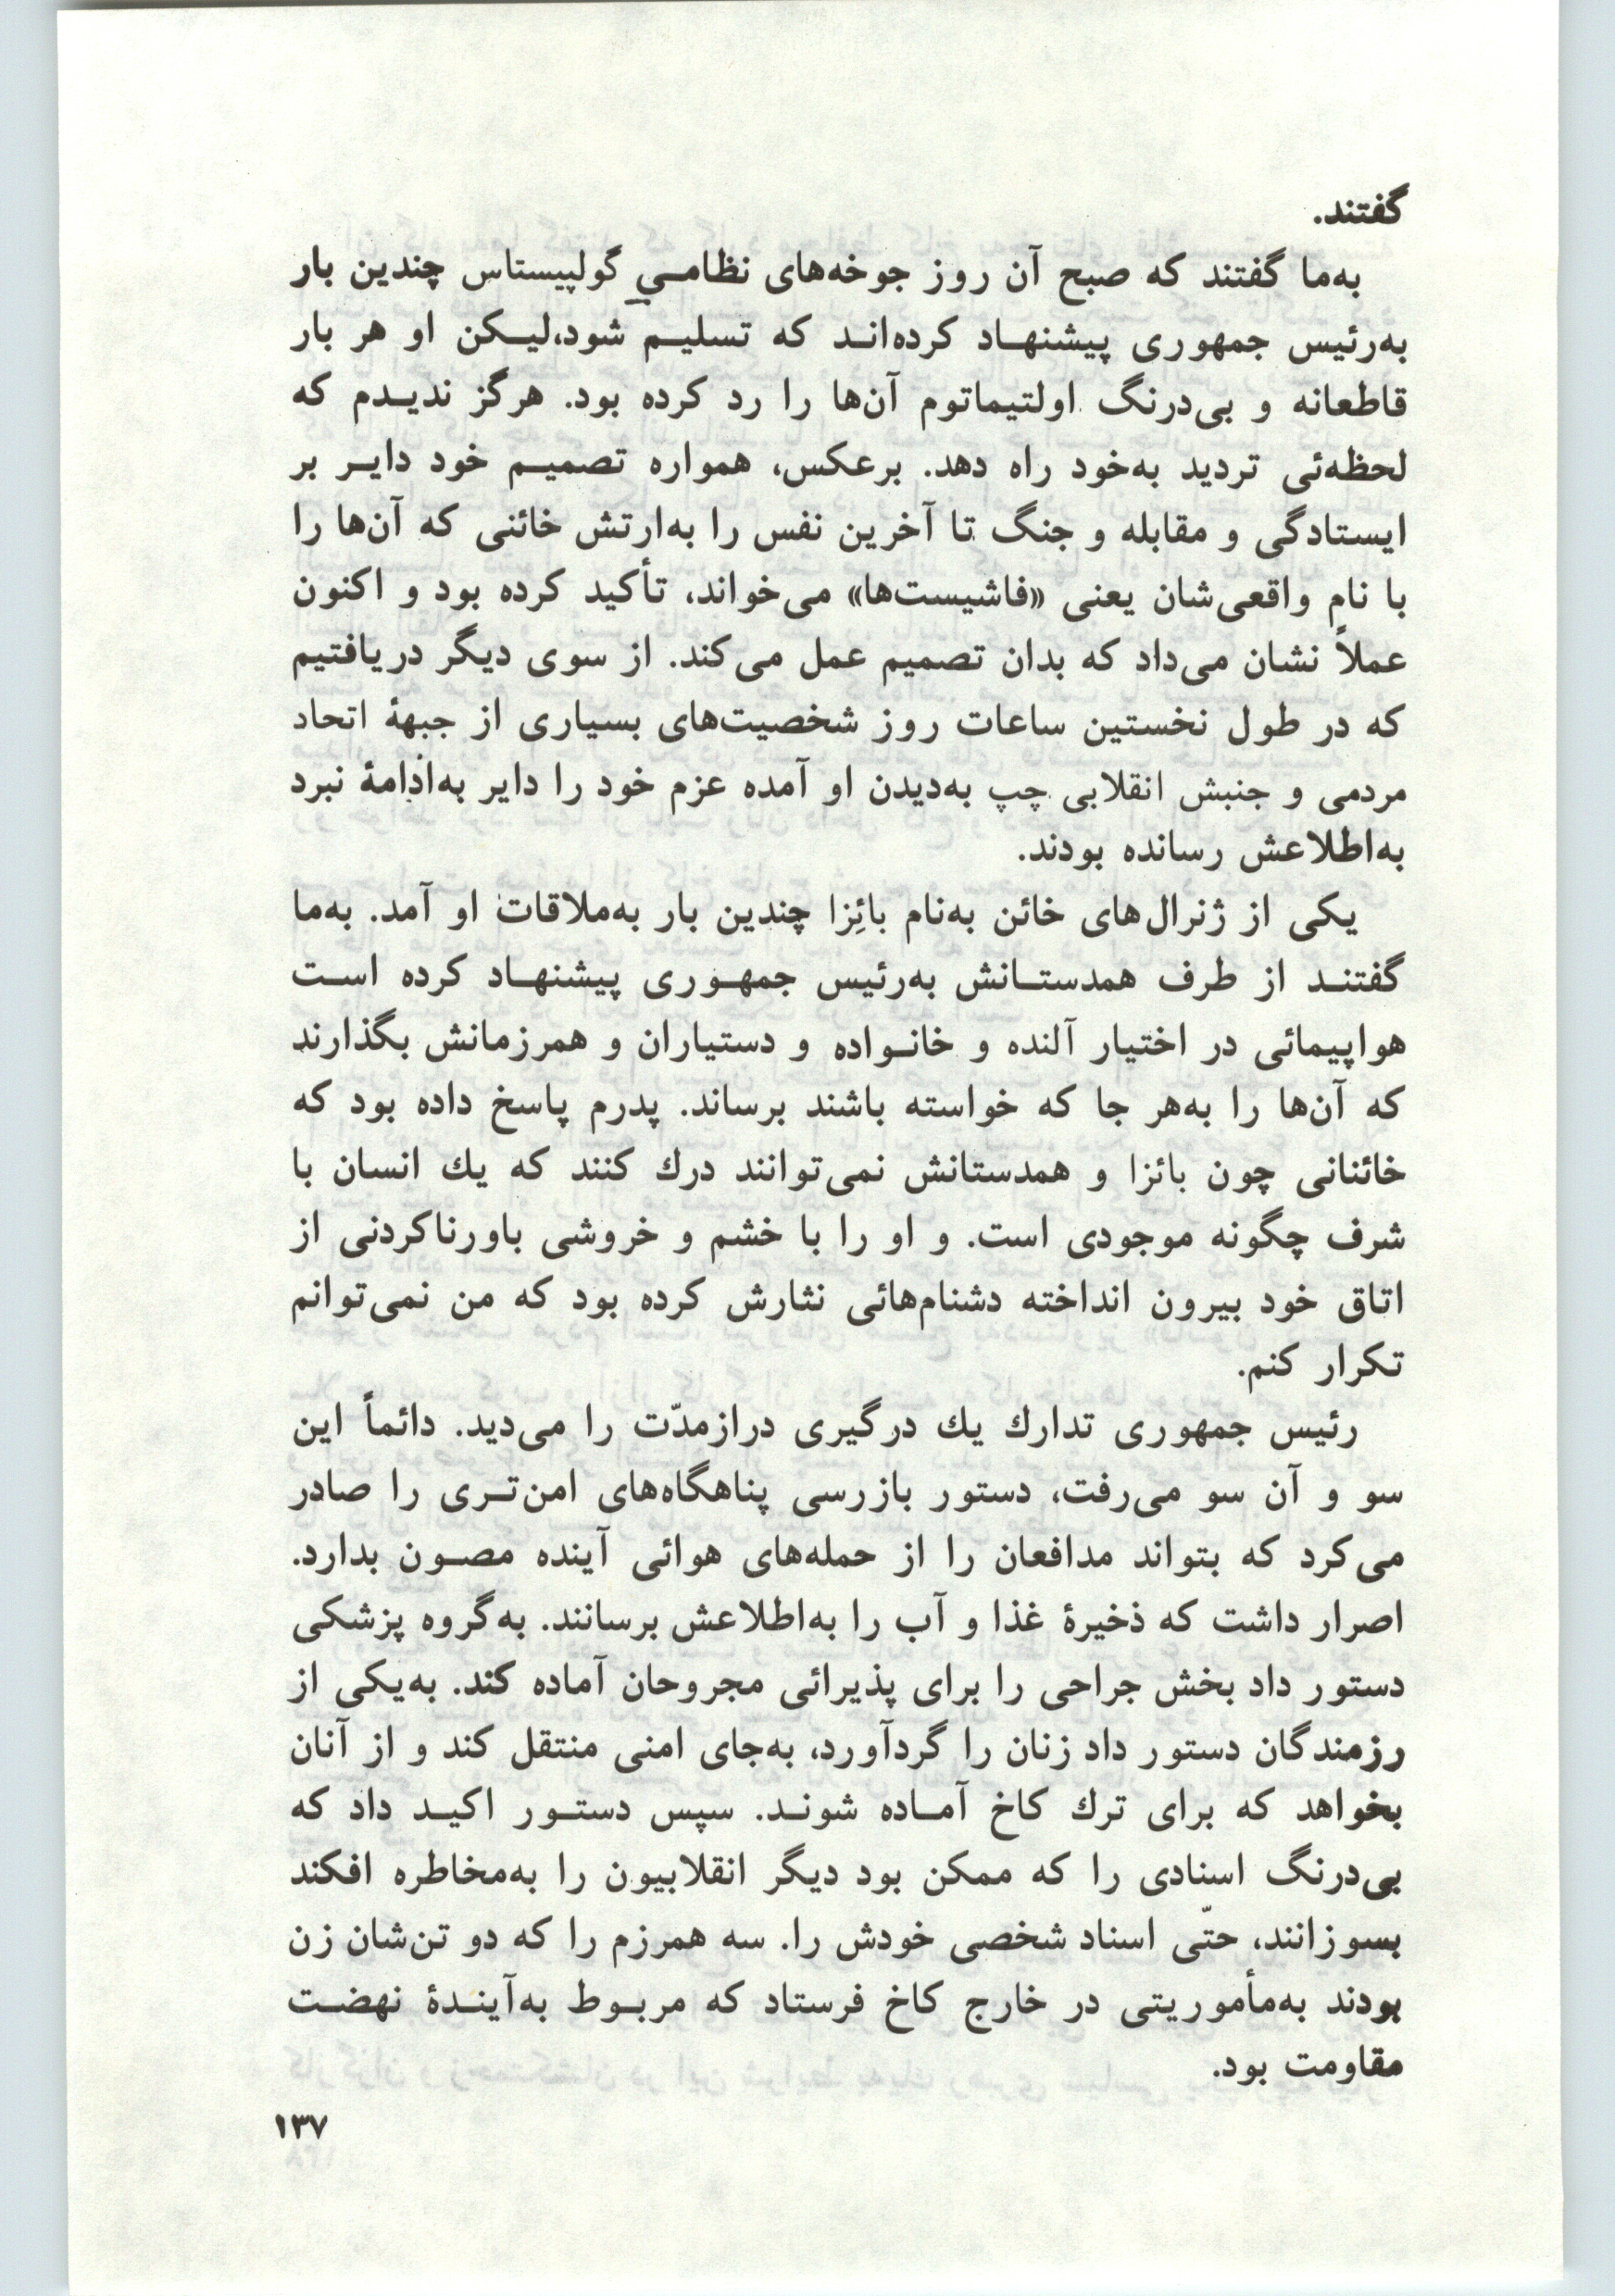 گفتند.
به‌ما گفتند که صبح آن روز جوخه‌های نظامـیِ گولپیستاس چندین بار
به‌رئیس جمهوری پیشنهـاد کرده‌انـد که تسلیـم شود،لیـکن او هر بار
قاطعانه و بی‌درنگ اولتیماتوم آن‌ها را رد کرده بود. هرگز ندیـدم که
لحظه‌ئی تردید به‌خود راه دهد. برعکس، همواره تصمیـم خود دایـر بر
ایستادگی و مقابله و جنگ تا آخرین نفس را به‌ارتش خائنی که آن‌ها را
با نام واقعی‌شان یعنی «فاشیست‌ها» می‌خواند، تأکید کرده بود و اکنون
عملاً نشان می‌داد که بدان تصمیم عمل می‌کند. از سوی دیگر دریافتیم
که در طول نخستین ساعات روز شخصیت‌های بسیاری از جبههٔ اتحاد
مردمی و جنبش انقلابی چپ به‌دیدن او آمده عزم خود را دایر به‌ادامهٔ نبرد
به‌اطلاعش رسانده بودند.
یکی از ژنرال‌های خائن به‌نام بائِزا چندین بار به‌ملاقات او آمد. به‌ما
گفتنـد از طرف همدستـانش به‌رئیس جمهـوری پیشنهـاد کرده اسـت
هواپیمائی در اختیار آلنده و خانـواده و دستیاران و همرزمانش بگذارند
که آن‌ها را به‌هر جا که خواسته باشند برساند. پدرم پاسخ داده بود که
خائنانی چون بائزا و همدستانش نمی‌توانند درك کنند که یك انسان با
شرف چگونه موجودی است. و او را با خشم و خروشی باورناکردنی از
اتاق خود بیرون انداخته دشنام‌هائی نثارش کرده بود که من نمی‌توانم
تکرار کنم.
رئیس جمهوری تدارك یك درگیری درازمدّت را می‌دید. دائماً این
سو و آن سو می‌رفت، دستور بازرسی پناهگاه‌های امن‌تـری را صادر
می‌کرد که بتواند مدافعان را از حمله‌های هوائی آینده مصـون بدارد.
اصرار داشت که ذخیرهٔ غذا و آب را به‌اطلاعش برسانند. به‌گروه پزشکی
دستور داد بخش جراحی را برای پذیرائی مجروحان آماده کند. به‌یکی از
رزمندگان دستور داد زنان را گردآورد، به‌جای امنی منتقل کند و از آنان
بخواهد که برای ترك کاخ آمـاده شونـد. سپس دستـور اکیـد داد که
بی‌درنگ اسنادی را که ممکن بود دیگر انقلابیون را به‌مخاطره افکند
بسوزانند، حتّی اسناد شخصی خودش را. سه همرزم را که دو تن‌شان زن
بودند به‌مأموریتی در خارج کاخ فرستاد که مربـوط به‌آینـدهٔ نهضـت
مقاومت بود.
۱۳۷